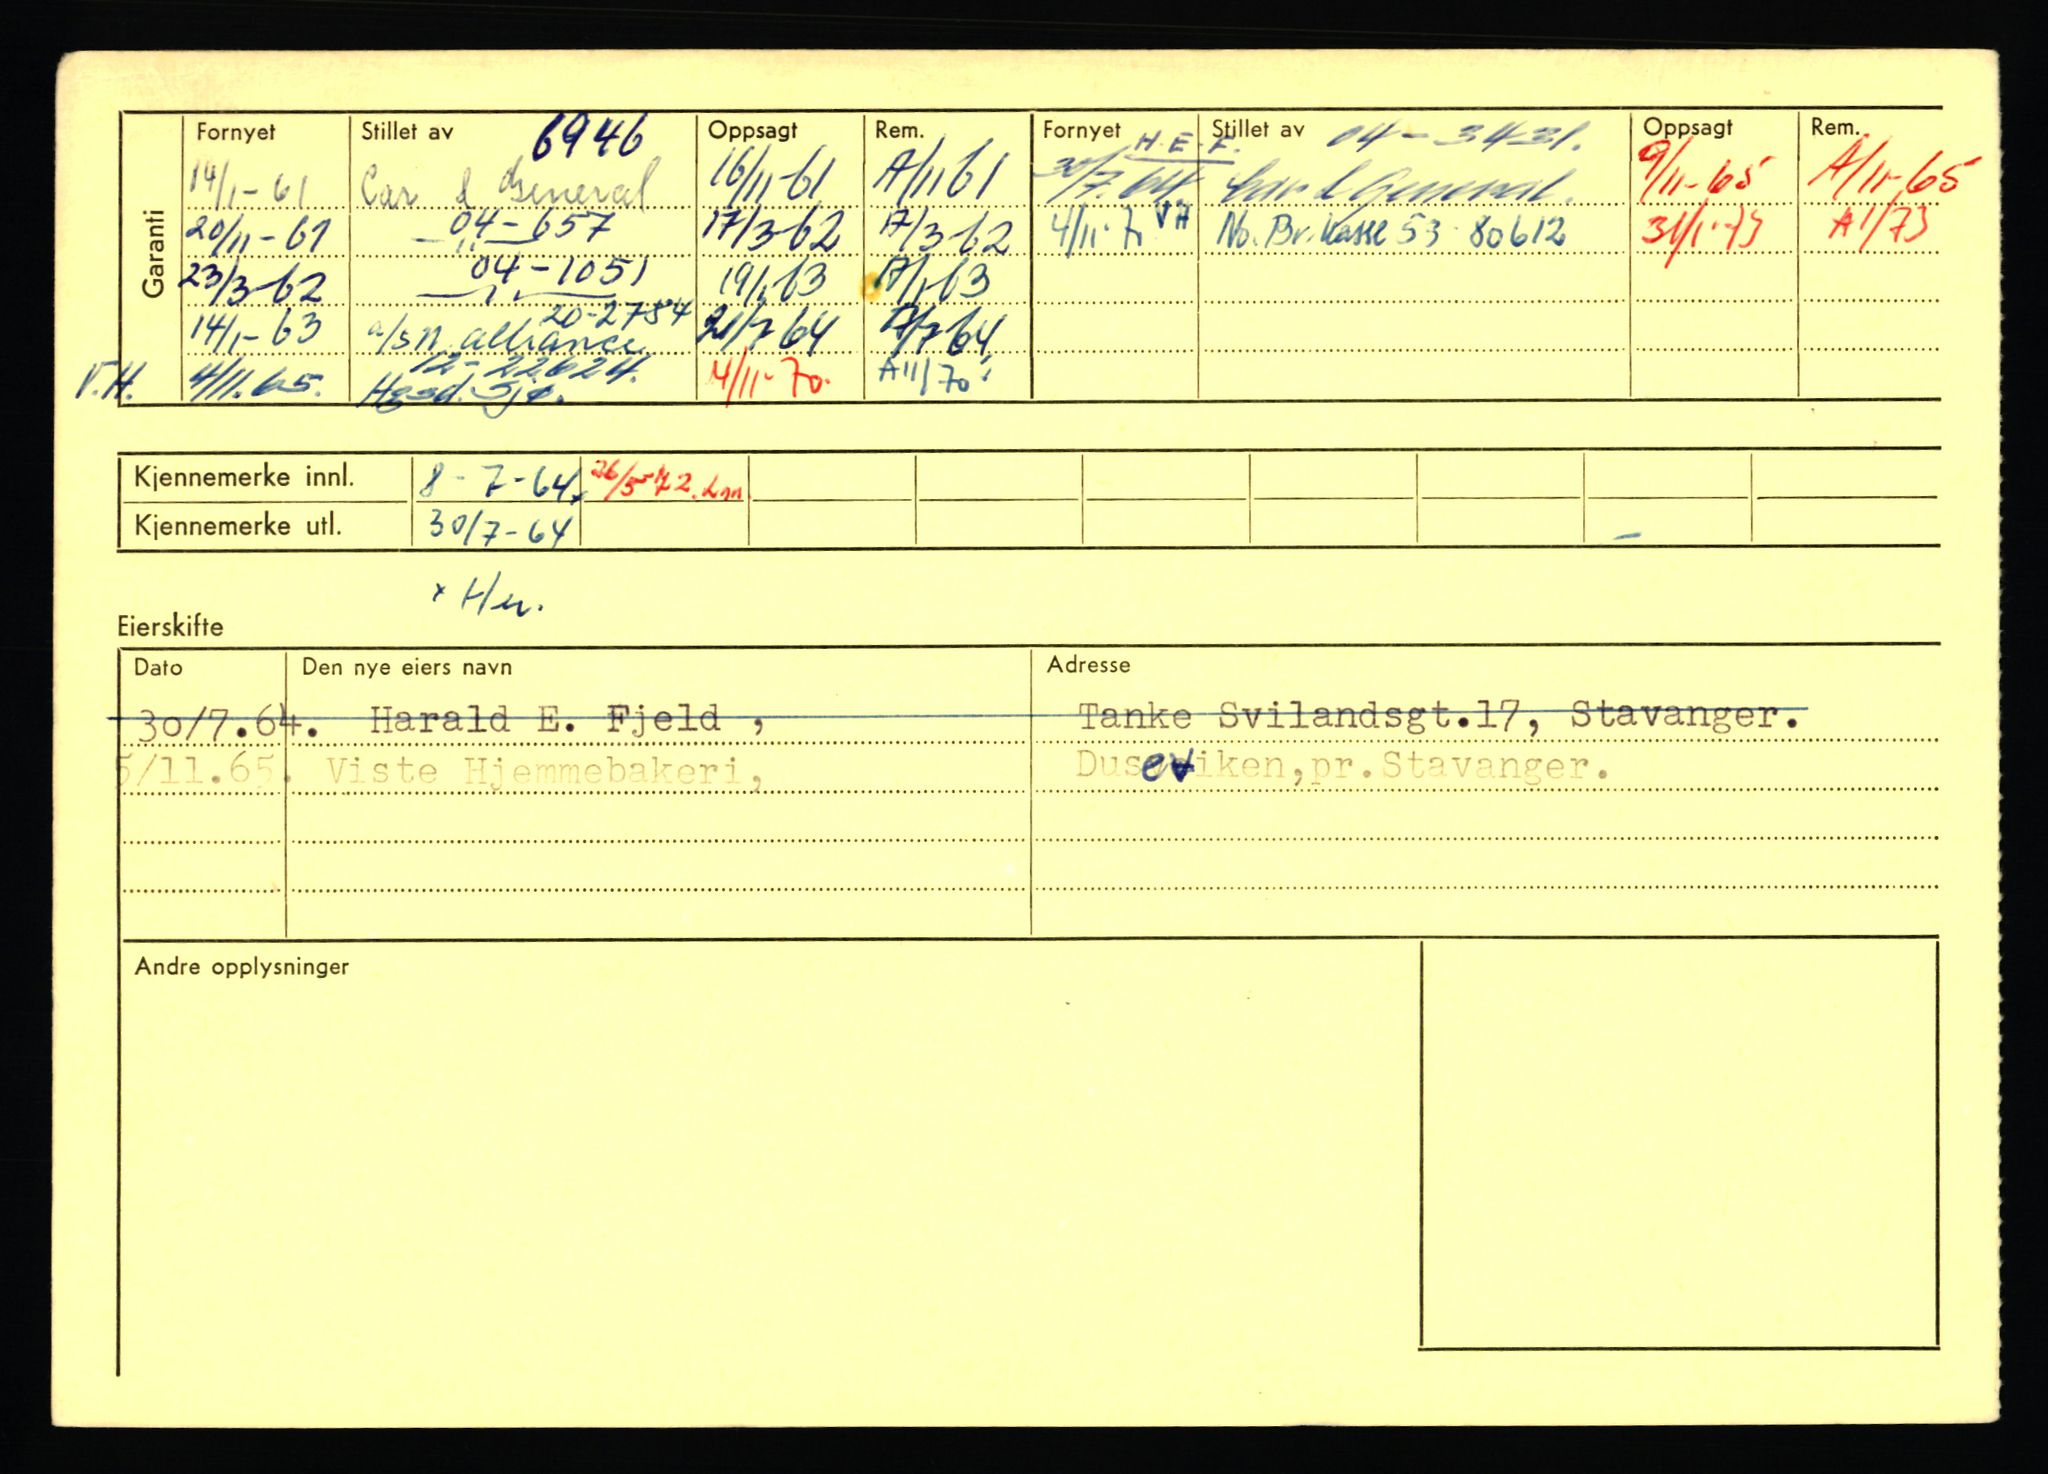 Garanti
Fornyet Stillet av 6946 Oppsagt Rem. Fornyet H.E.F. Stillet av 04-3431. Oppsagt Rem.
14/1-61 Car & General 16/11-61 A/11 61 30/7.64 Car & General. 9/11-65 A/11-65
20/11-61 04-657 17/3-62 17/3-62 4/11-70 VH No.Br.kasse 53 80612 31/1-73 A1/73
23/3-62 04-1051 19/1.63 A/1.63
14/1-63 a/s N. alliance 20-2784 21/7 64 A/7 64
V.H. 4/11.65. 12-22624. Hgsd. Sjø. 4/11-70. A11/70
Kjennemerke innl. 8-7-64x 26/5-72.Inn.
Kjennemerke utl. 30/7-64
x Hu.
Eierskifte
Dato Den nye eiers navn Adresse
30/7.64. Harald E. Fjeld , Tanke Svilandsgt.17, Stavanger.
5/11.65. Viste Hjemmebakeri, Duseviken,pr.Stavanger.
Andre opplysninger